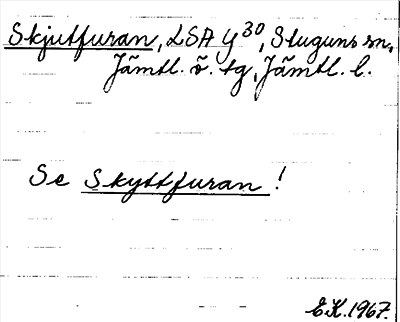 Skjutfuran, LSA y30, Stuguns sn,
Jämtl. ö. tg, Jämtl. l.
Se Skyttfuran!
E.K. 1967.